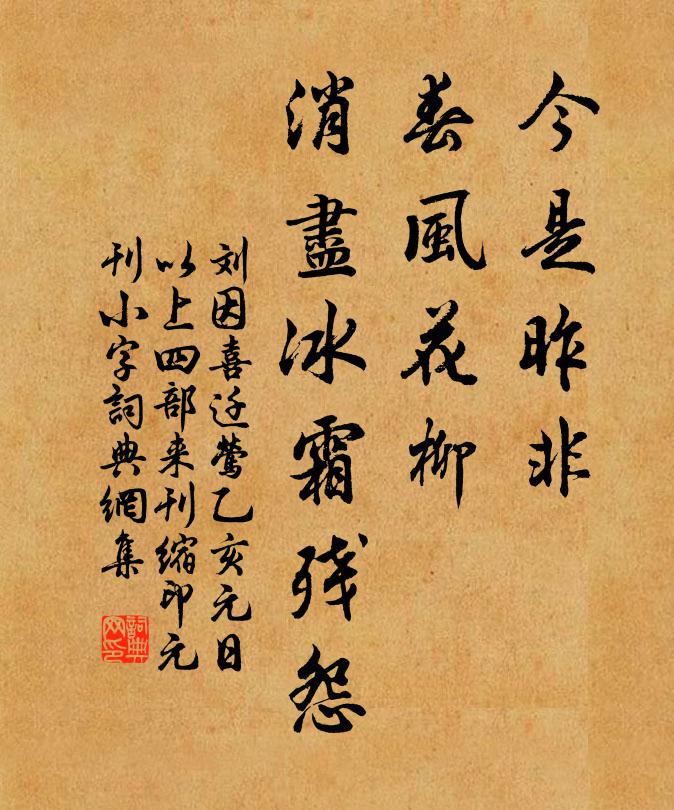 今是昨非
春風花柳
消盡冰霜残怨
刘因喜迁莺乙亥元日
以上四部来刊缩印元
刊小字詞典網集
詞典网印